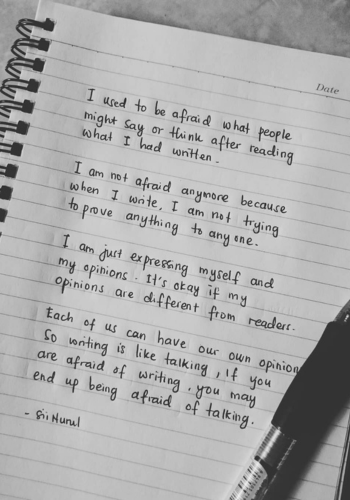 Date
I used to be afraid what people
might say or think after reading
what I had written.
I am not afraid anymore because
when I write, I am not trying
to prove anything to anyone.
I am just expressing myself and
my opinions. It's okay if my
opinions are different from readers.
Each of us can have our own opinion
So writing is like talking, if you
are afraid of writing, you may
end up being afraid of talking.
- Sii Nurul